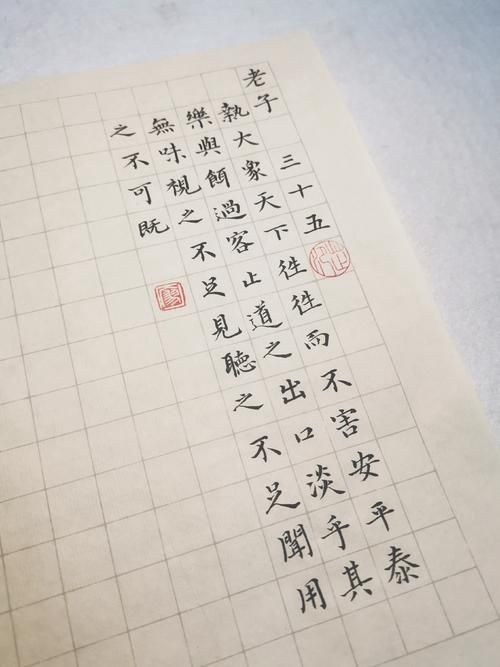 老子 三十五
執大象天下往往而不害安平泰
樂與餌過客止道之出口淡乎其
無味視之不足見聽之不足聞用
之不可既